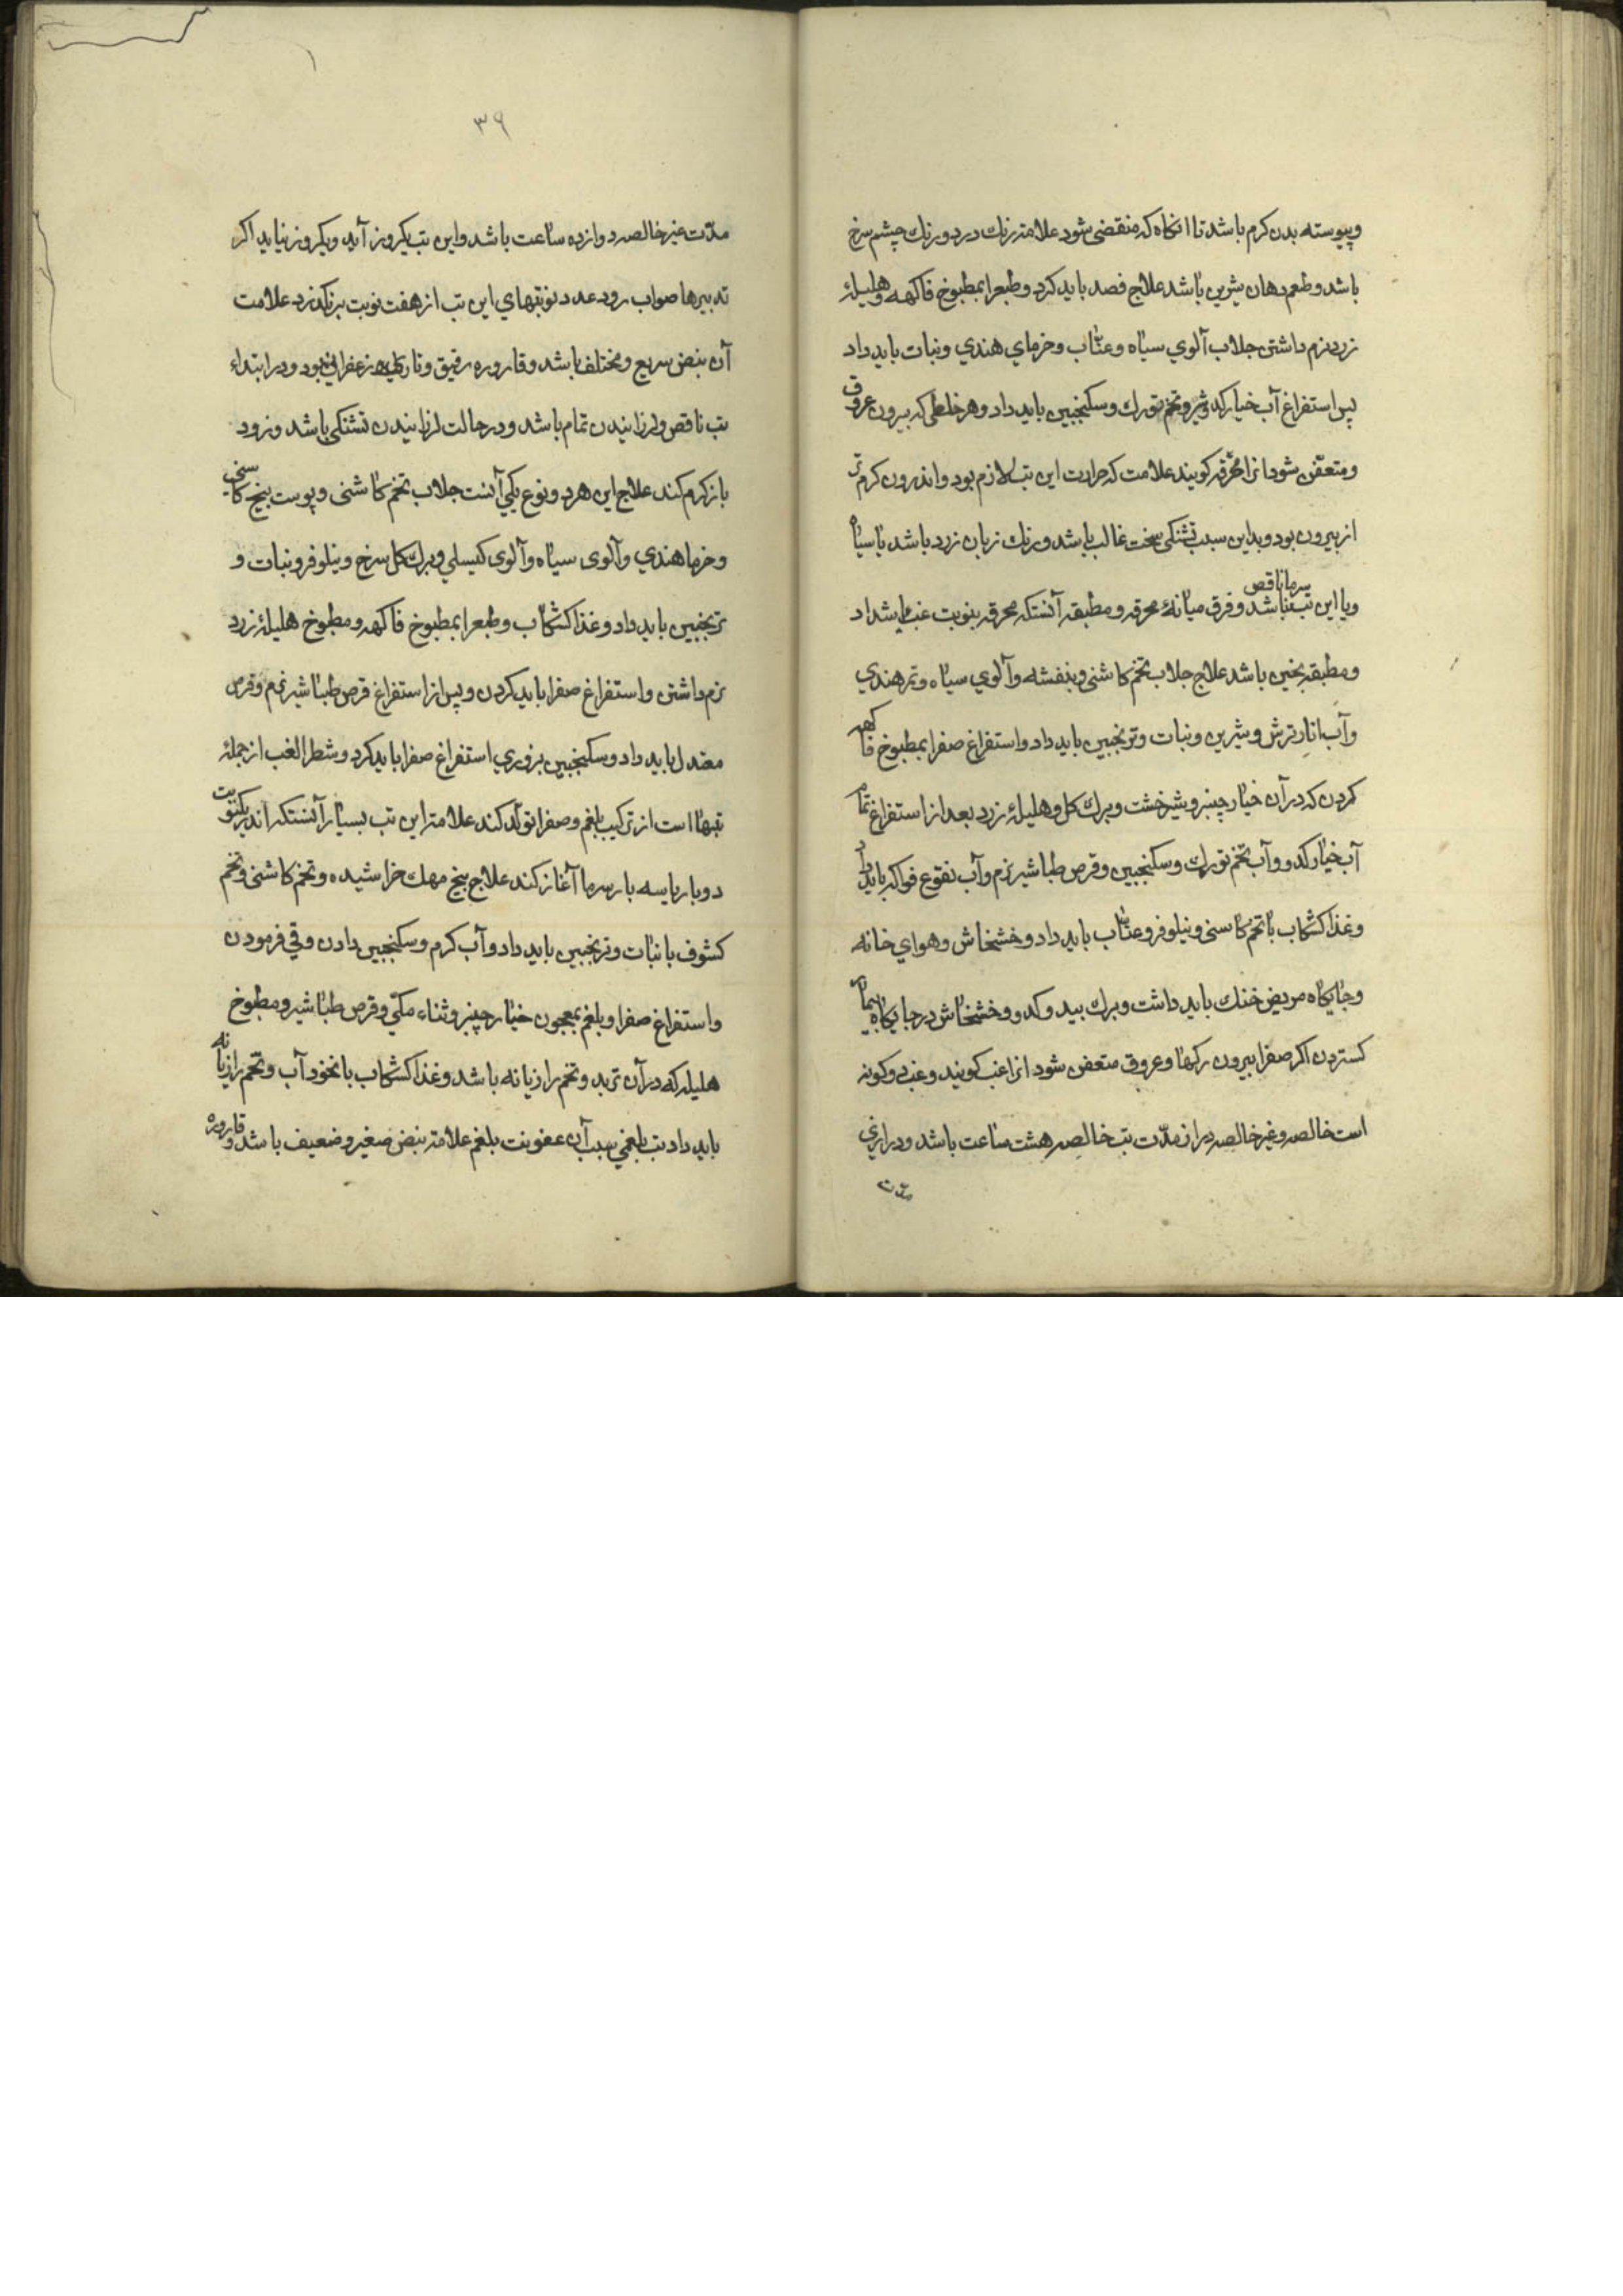 وپیوسته بدن کرم باشد تا انکاه که منقضی شود علامته رنك درد ورنك چشم سرخ
باشد وطعم دهان شیرین باشد علاج فصد باید کرد وطبع را بمطبوخ فاکهه وهلیلۀ
زرد نرم داشتن جلاب آلوي سیاه وعنّاب وخرماي هندي ونبات باید داد
پس استفراغ آب خیار کدو شیرو تخم تورك وسکنجبین باید داد وهر خلطی که بیرون عروق
ومتعفّن شود انرا محرّقه کویند علامت که حرارت این تب لازم بود واندرون کرم تر
از بیرون بود وبداین سبب تشنکی سخت غالب باشد ورنك زبان زرد باشد یا سیاه
ویا این تب سرما ناقص نباشد وفرق میانۀ محرقه ومطبقه آنستکه محرقه بنوبت غب باشداد
ومطبقه بخین باشد علاج جلاب تخم کاشنی وبنفشه وآلوي سیاه وتمر هندي
وآب انار ترش وشیرین ونبات وترنجبین باید داد واستفراغ صفرا بمطبوخ فاکهه
کردن که در آن خیار چنبر وشیر خشت وبرك کل وهلیلۀ زرد بعد از استفراغ تمام
آب خیار کدو وآب تخم تورك وسکنجبین وقرص طباشیر نرم وآب نقوع فواکه باید داد
وغذا کشکاب با تخم کاسنی ونیلوفر وعنّاب باید داد وخشخاش وهواي خانه
وجایکاه مریض خنك باید داشت وبرك بید وکدو وخشخاش در جایکاه بیمار
کستردن اکر صفرا بیرون رکها وعروق متعفن شود انرا غب کویند وغب دو کونه
است خالصه وغیر خالصه دراز مدّت تب خالصه هشت ساعت باشد ودرازي
مدّت
٣٩
مدّت غیر خالصه دوازده ساعت باشد واین تب یکروز آید ویکروز نیاید اکر
تدبیرها صواب رود عدد نوبتهاي این تب از هفت نوبت برنکذرد علامت
آن نبض سریع ومختلف باشد وقاروره رقیق وناری زعفرانی بود ودر ابتداء
تب ناقص ولرزانیدن تمام باشد ودر حالت لرزانیدن تشنکی باشد وزود
باز کرم کند علاج این هر دو نوع یکی آنست جلاب تخم کاشنی وپوست بیخ کاسنی
وخرما هندي وآلوی سیاه وآلوی کیسلي وبرك کل سرخ ونیلوفر ونبات و
ترنجبین باید داد وغذا کشکاب وطبع را بمطبوخ فاکهه ومطبوخ هلیلۀ زرد
نرم داشتن واستفراغ صفرا باید کردن وپس از استفراغ قرص طباشیر نرم وقرص
معتدل باید داد وسکنجبین بزوري استفراغ صفرا باید کرد وشطر الغب از جملۀ
تبها است از ترکیب بلغم وصفرا تولّد کند علامته این تب بسیار آنستکه اندر یکنوبت
دوبار یا سه بار سرما آغاز کند علاج بیخ مهك خراشیده وتخم کاشنی وتخم
کشوف با نبات وترنجبین باید داد وآب کرم وسکنجبین دادن وقی فرمودن
واستفراغ صفرا وبلغم بمعجون خیار چنبر وثناء مکّي وقرص طباشیر ومطبوخ
هلیله که در آن تربد وتخم رازیانه باشد وغذا کشکاب با نخود آب وتخم رازیانه
باید داد تب بلغمي سبب آن عفونت بلغم علامته نبض صغیر وضعیف باشد وقاروره